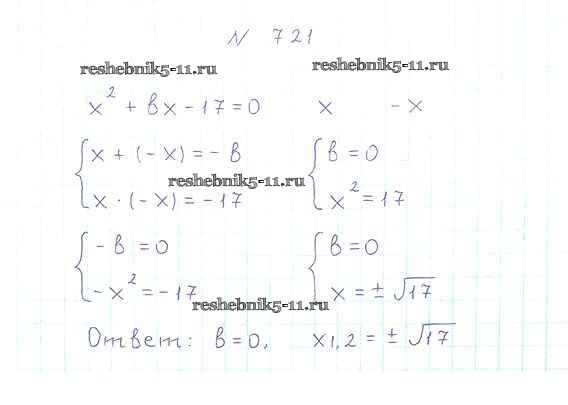 N 721
reshebnik5-11.ru reshebnik5-11.ru
x² + bx - 17 = 0 x - x
{ x + (- x) = - b { b = 0
reshebnik5-11.ru
x · (- x) = - 17 x² = 17
{ - b = 0 { b = 0
- x² = - 17 x = ± √17
reshebnik5-11.ru
Ответ: b = 0, x1,2 = ± √17